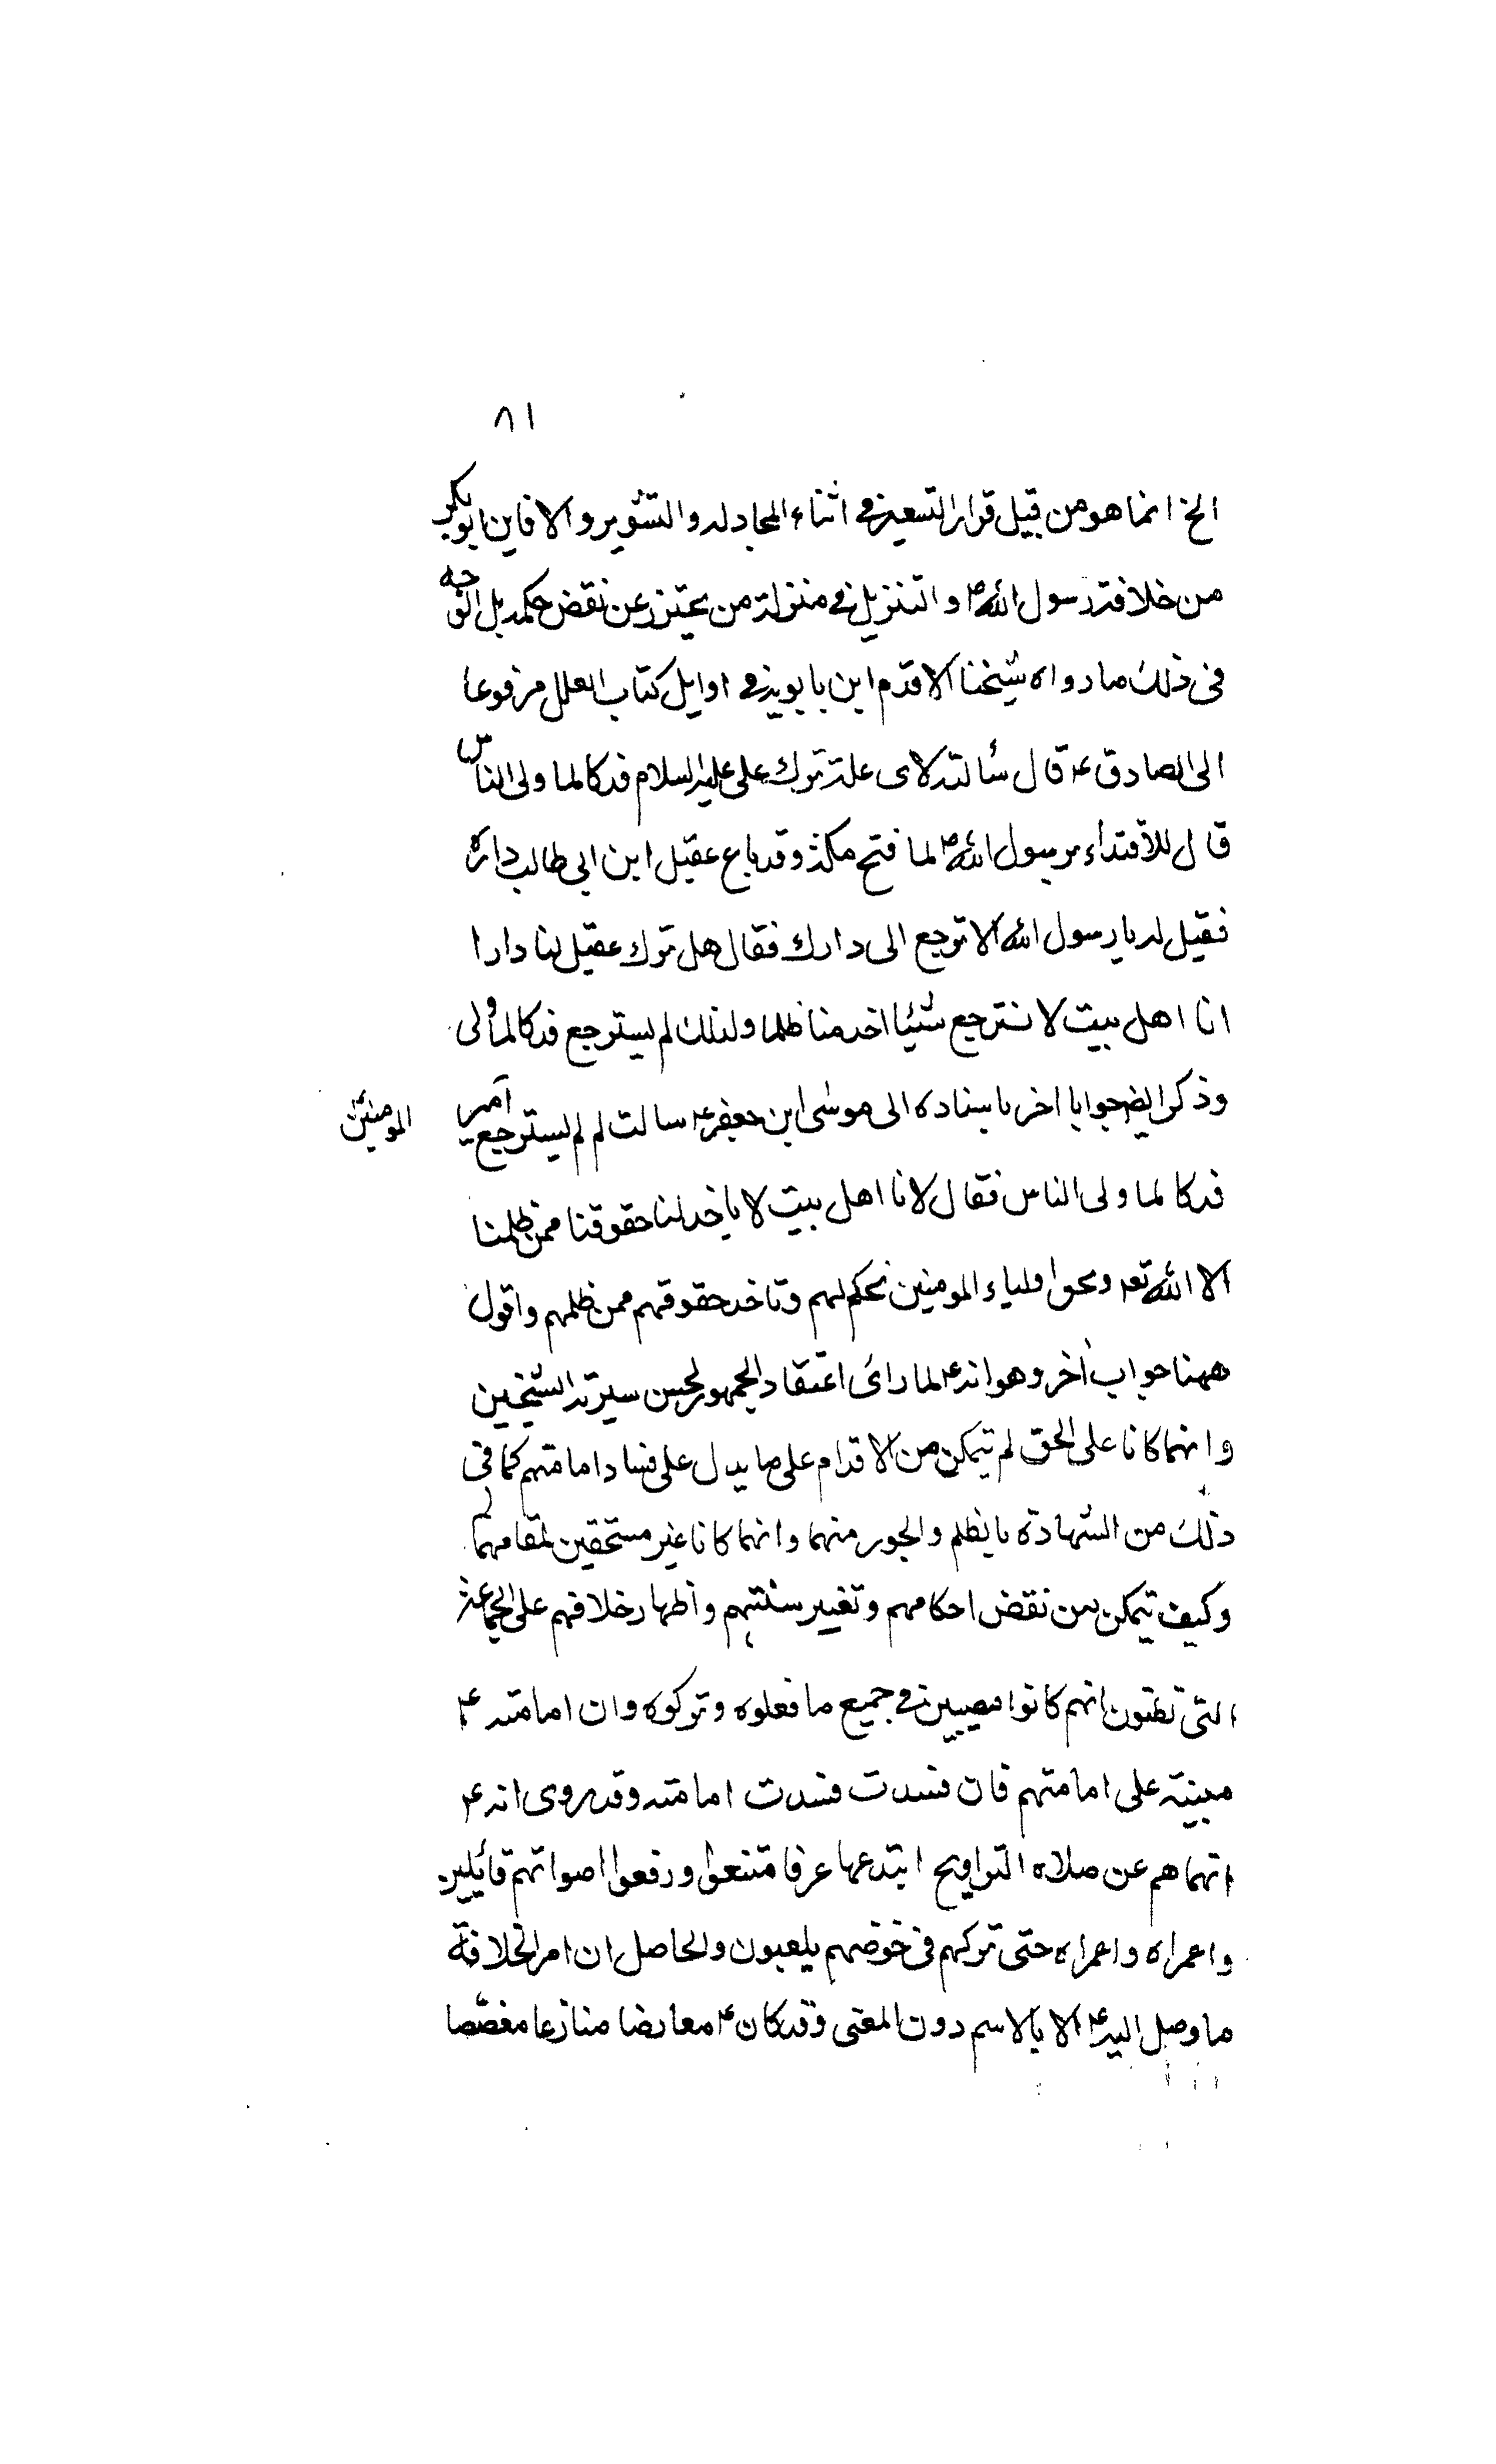 ٨١
الخ انما هو من قبيل قرار التسعير في اثناء المجادله والتشوير والا فاين ابو بكر
من خلافة رسول الله ص والتنزيل في منزلة من يحترز عن نقض حكمه بل الوجه
في ذلك ما رواه شيخنا الاقدم ابن بابويه في اوايل كتاب العلل مرفوعا
الى الصادق ع قال سألته لاى علة ترك على عليه السلام فدكا لما ولى الناس
قال للاقتداء برسول الله ص لما فتح مكة وقد باع عقيل ابن ابى طالب داره
فقيل له يا رسول الله الا ترجع الى دارك فقال هل ترك عقيل لنا دارا
انا اهل بيت لا نسترجع شيئا اخذ منا ظلما ولذلك لم يسترجع فدكا لما ولى
وذكر ايض جوابا اخر باسناده الى موسى ابن جعفر ع سالت لم لم يسترجع امير المومنين
فدكا لما ولى الناس فقال لانا اهل بيت لا ياخذ لنا حقوقنا ممن ظلمنا
الا الله تعه ونحن اولياء المومنين نحكم لهم وناخذ حقوقهم ممن ظلمهم واقول
ههنا جواب آخر وهو انه ع لما رائ اعتقاد الجمهور لحسن سيرته الشيخين
وانهما كانا على الحق لم يتمكن من الاقدام على ما يدل على فساد امامتهم كما في
ذلك من الشهادة بالظلم والجور منهما وانهما كانا غير مستحقين لمقامهما
وكيف يتمكن من نقض احكامهم وتغيير سنتهم واظهار خلافهم على الجماعة
التى تظنون انهم كانوا مصيبين في جميع ما فعلوه وتركوه وان امامته ع
مبينة على امامتهم فان فسدت فسدت امامته وقد روى انه ع
انهاهم عن صلاه التراويح ابتدعها عرفا متنعوا ورفعوا اصواتهم قائيلين
واعمراه واعمراه حتى تركهم في خوضهم يلعبون والحاصل ان امر الخلافة
ما وصل اليه ع الا بالاسم دون المعنى وقد كان ع معارضا منازعا مغصصا